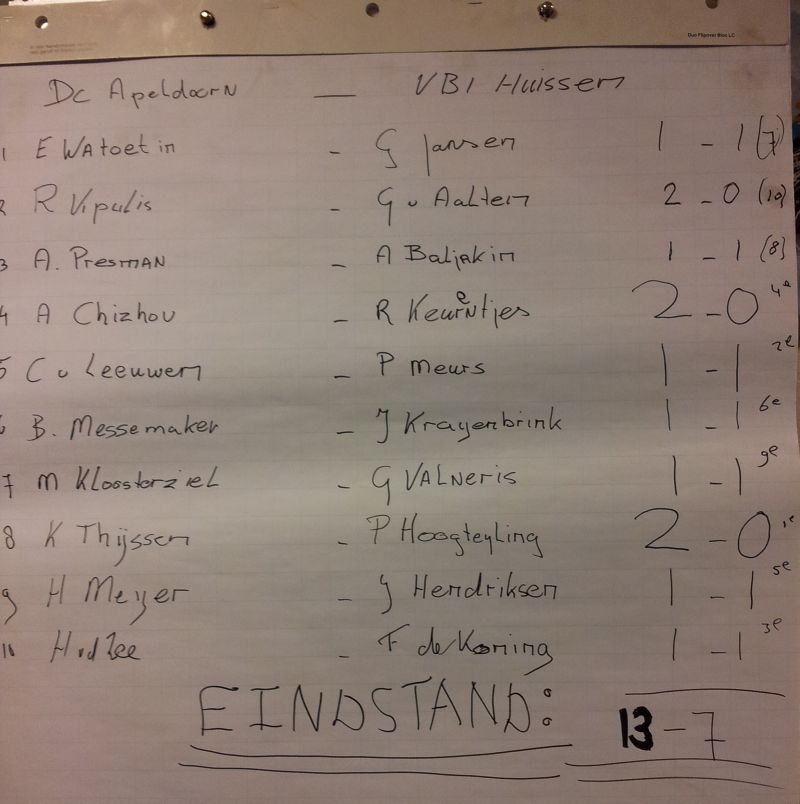 Duo Flipover Bloc LC
Dc Apeldoorn — VBI Huissen
1 E Watoetin - G Jansen 1 - 1 (7)
2 R Vipulis - G v Aalten 2 - 0 (10)
3 A. Presman - A Baljakin 1 - 1 (8)
4 A Chizhov - R Keurentjes 2 - 0 4e
5 C v Leeuwen - P Meurs 1 - 1 2e
6 B. Messemaker - J Krayenbrink 1 - 1 6e
7 M Kloosterziel - G Valneris 1 - 1 9e
8 K Thijssen - P Hoogteyling 2 - 0 1e
9 H Meyer - J Hendriksen 1 - 1 5e
10 H vd Zee - F de Koning 1 - 1 3e
EINDSTAND: 13 - 7